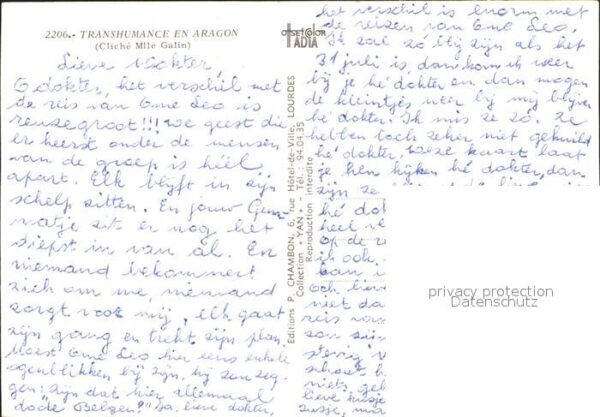 2206.- TRANSHUMANCE EN ARAGON
(Cliché Mlle Galin)
Lieve Dokter,
O dokter, het verschil met
de reis van Ome Leo is
reuzegroot!!! De geest die
er heerst onder de mensen
van de groep is héél
apart. Elk blijft in zijn
schelp zitten. En jouw
zit er nog het
diepst in van al. En
niemand bekommert
zich om me, niemand
zorgt voor mij, elk gaat
zijn gang en trekt zijn plan.
Moest Ome Leo hier eens enkele
ogenblikken bij zijn, hij zou zeg-
gen: zijn dat hier allemaal
dode Belgen?" Ja, lieve dokter,
OFFSET COLOR
IADIA
Editions P. CHAMBON, 6, rue Hôtel-de-Ville, LOURDES
Collection «YAN» - Tél.: 94.04.35
Reproduction interdite
het verschil is enorm met
de reizen van Ome Leo.
Ik zal zo blij zijn als het
31 juli is, dan kom ik weer
bij je hé dokter en dan mogen
de kleintjes weer bij mij blijven
hé dokter! Ik mis ze zo. Ze
hebben toch zeker niet gehuild
hé dokter, deze kaart laat
je hen kijken hé dokter, dan
zijn ze
hé dok
heel v
op de r
ik ook.
kan i
och lieve
niet da
reis va
zon
stevig
niets. gel
lieve
privacy protection
Datenschutz